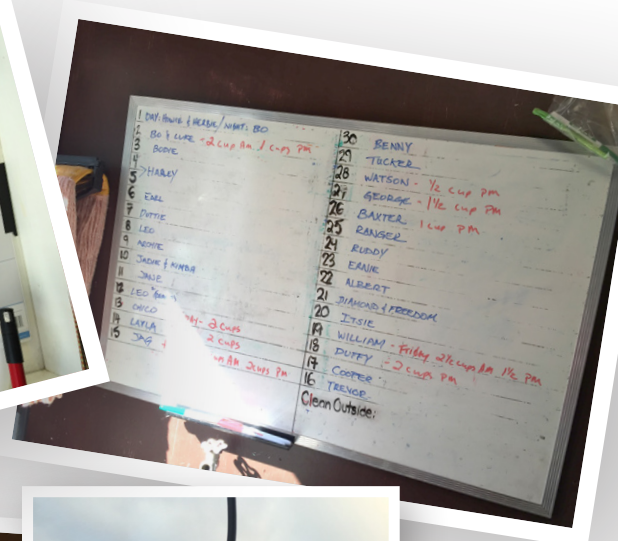 1 DAY: HOWIE & HERBIE / NIGHT: BO
2 BO & LUKE - 2 cup Am 1 cup pm
3 BODIE
4
5 > HARLEY
6 EARL
7
8 LEO
9
10 JACKIE & KIMBA
11 JANE
12 LEO
13 CHICO - 2 cups
14 LAYLA 2 cups
15 JAG Am 2 cups pm
30 BENNY
29 TUCKER
28 WATSON - 1/2 cup pm
27 GEORGE - 1 1/2 cup pm
26 BAXTER 1 cup pm
25 RANGER
24 RUDDY
23 ERNIE
22 ALBERT
21 DIAMOND & FREEDOM
20 ITSIE
19 WILLIAM - Friday 2 1/2 cup Am 1 1/2 pm
18 DUFFY - 2 cups pm
17 COOPER
16 TREVOR
Clean Outside: